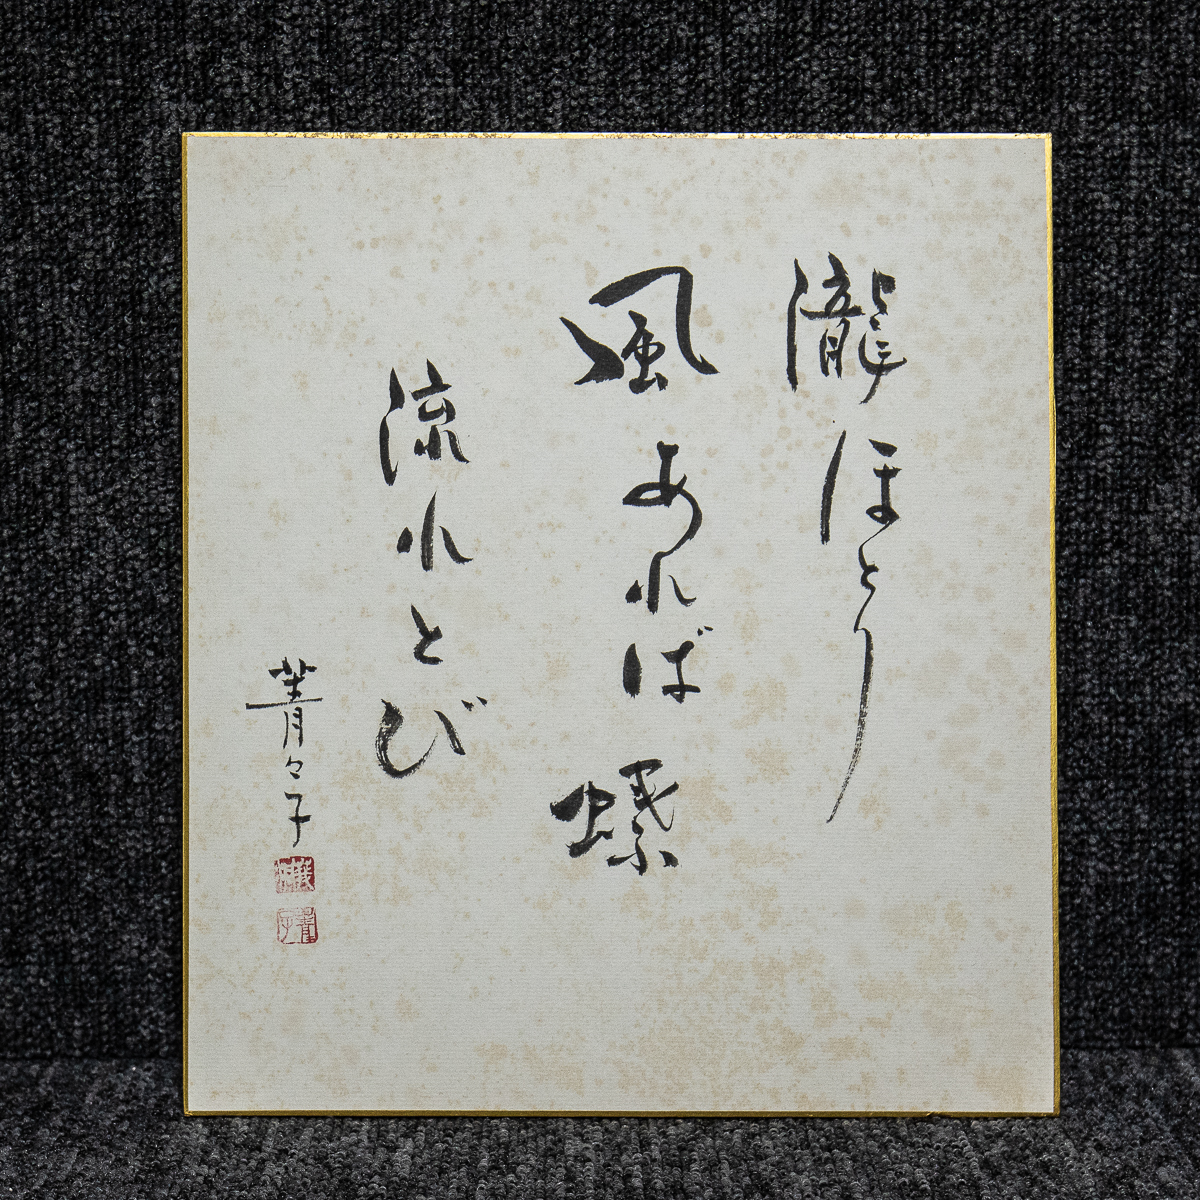 瀧ほとり
風あれば蝶
流れとび
菁々子